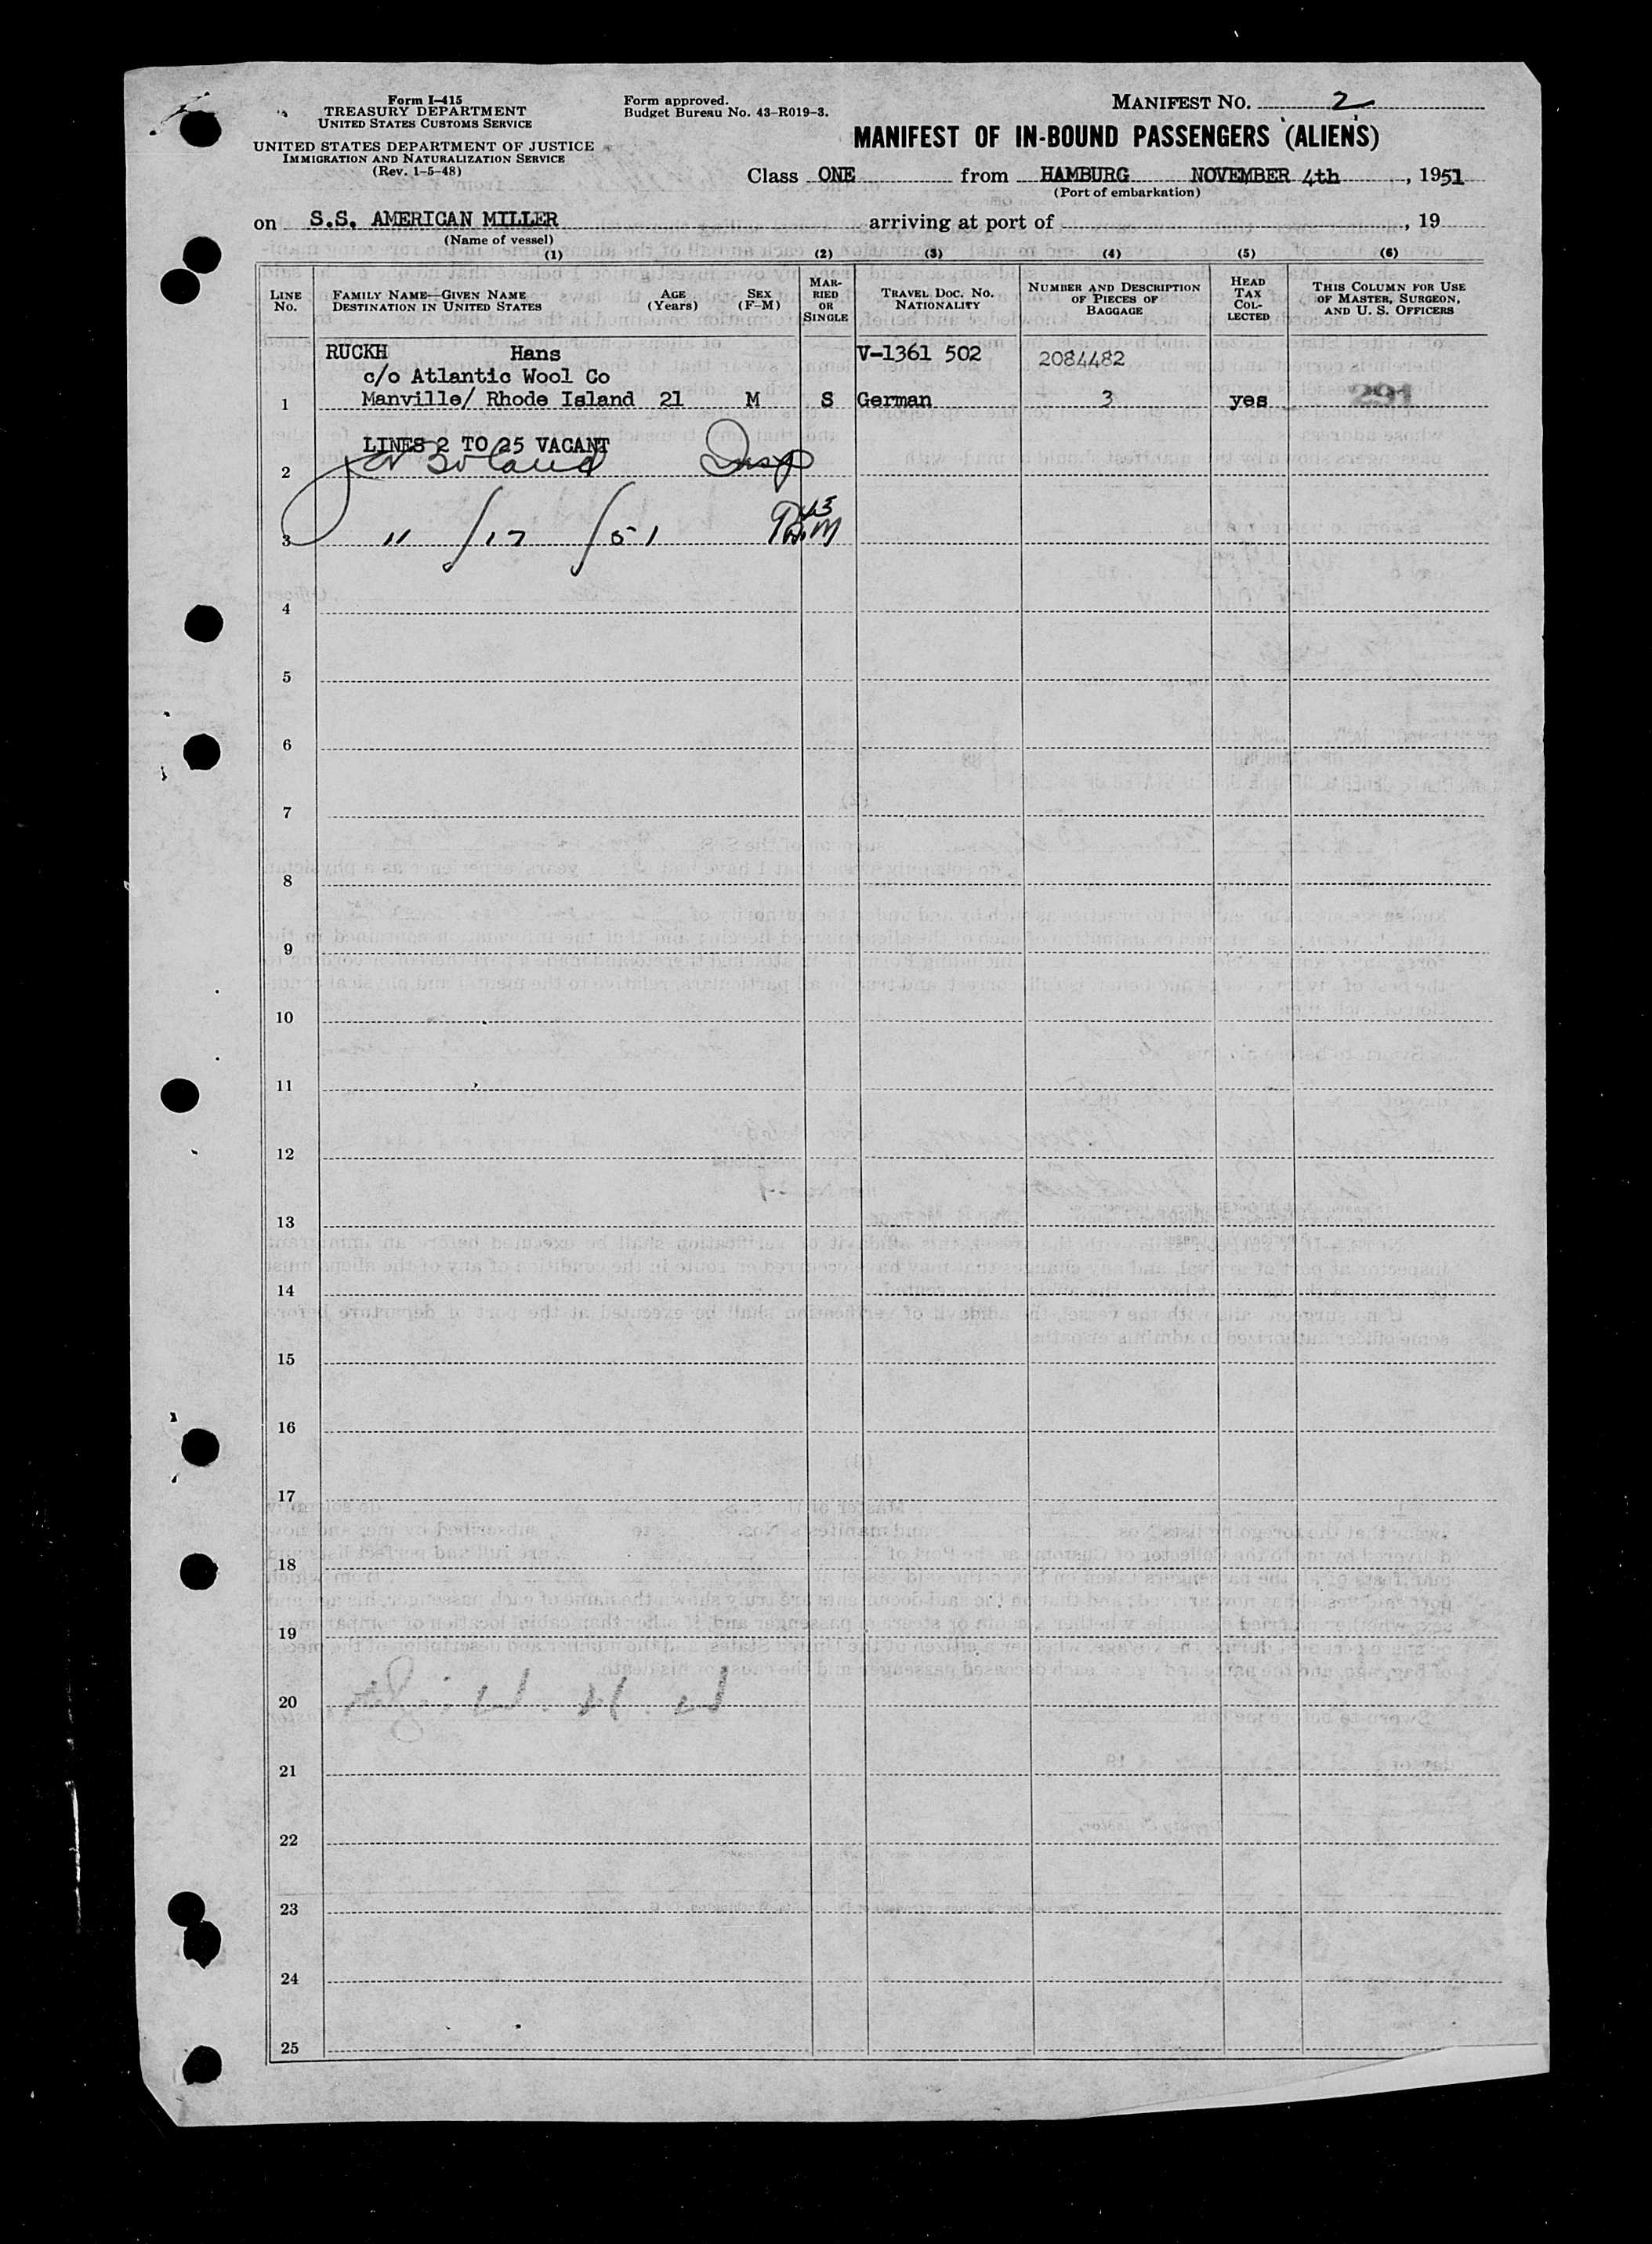 Form I-415
TREASURY DEPARTMENT
UNITED STATES CUSTOMS SERVICE
UNITED STATES DEPARTMENT OF JUSTICE
IMMIGRATION AND NATURALIZATION SERVICE
(Rev. 1-5-48)
Form approved.
Budget Bureau No. 43-R019-3.
MANIFEST NO. 2
MANIFEST OF IN-BOUND PASSENGERS (ALIENS)
Class ONE from HAMBURG NOVEMBER 4th, 1951
(Port of embarkation)
on S.S. AMERICAN MILLER arriving at port of , 19
(Name of vessel)
(1) (2) (3) (4) (5) (6)
LINE NO. FAMILY NAME—GIVEN NAME DESTINATION IN UNITED STATES AGE (Years) SEX (F-M) MARRIED OR SINGLE TRAVEL DOC. NO. NATIONALITY NUMBER AND DESCRIPTION OF PIECES OF BAGGAGE HEAD TAX COLLECTED THIS COLUMN FOR USE OF MASTER, SURGEON, AND U. S. OFFICERS
RUCKH Hans V-1361 502 2084482
c/o Atlantic Wool Co
1 Manville/ Rhode Island 21 M S German 3 yes 291
LINES 2 TO 25 VACANT
2 Insp
3 11/17/51
4
5
6
7
8
9
10
11
12
13
14
15
16
17
18
19
20
21
22
23
24
25